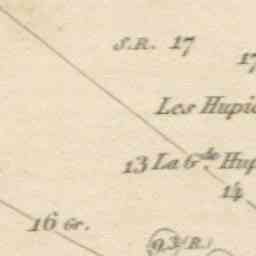 S.R. 17
17
Les Hupi
13 La G.de Hup
14
16 Gr.
93 (R.)